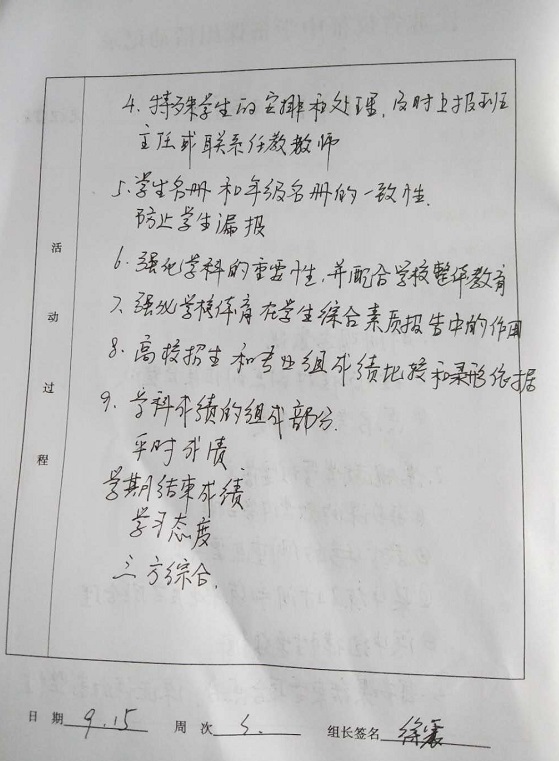 4. 特殊学生的安排和处理,及时上报班
主任或联系任教教师
5. 学生名册和年级名册的一致性.
防止学生漏报
6. 强化学科的重要性,并配合学校整体教育
7. 强化学校体育在学生综合素质报告中的作用
8. 高校招生和专业组成绩比较和录形依据
9. 学科成绩的组成部分.
平时成绩
学期结束成绩
学习态度
三方综合.
活动过程
日期 9.15 周次 组长签名 徐震